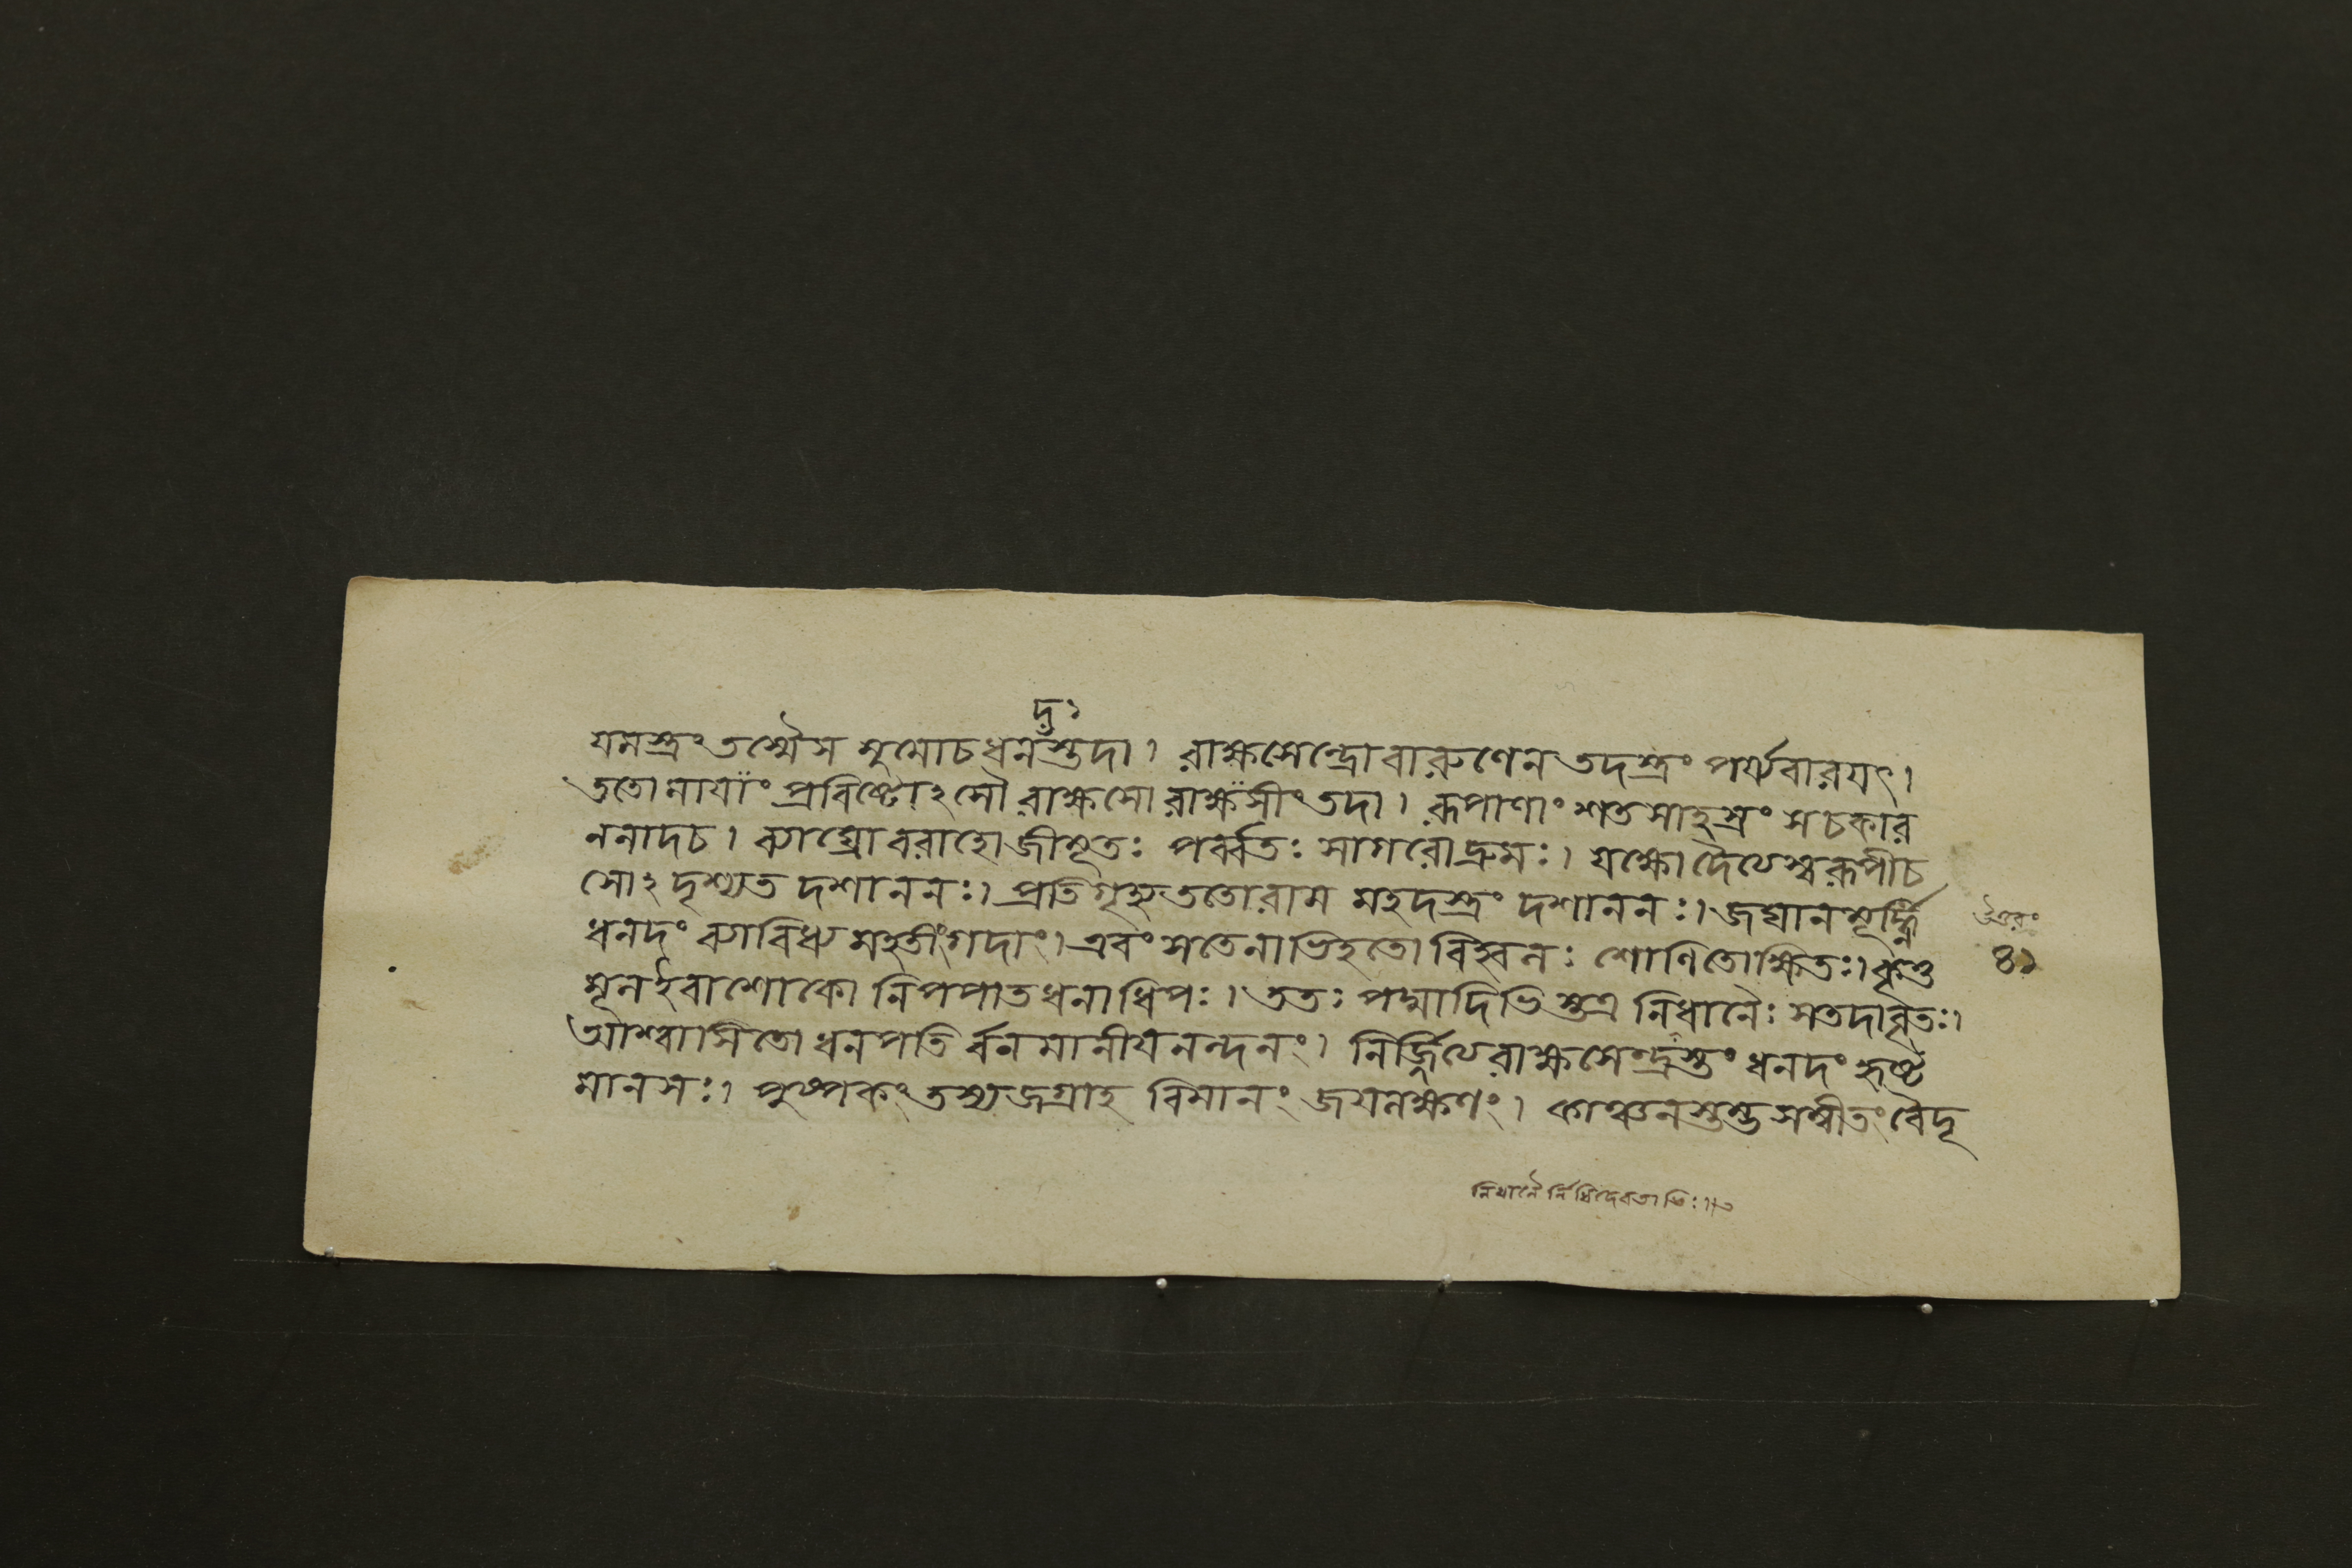 দঃ
যমস্ত্রং তস্মৈ স মুমোচ ধনদস্তদা। রাক্ষসেন্দ্রো বারুণেন তদস্ত্রং পর্য্যবারয়ৎ।
ততো মায়াং প্রবিষ্টোঽসৌ রাক্ষসো রাক্ষসীং তদা। রূপাণাং শতসাহস্রং স চকার
ননাদ চ। ব্যাঘ্রো বরাহো জীমূতঃ পর্ব্বতঃ সাগরো দ্রুমঃ। যক্ষো দৈত্যেশ্চ রূপী চ
সোঽদৃশ্যত দশাননঃ। প্রতিগৃহ্য ততো রাম মহদস্ত্রং দশাননঃ। জঘান মূর্দ্ধ্নি
ধনদং ব্যাবিধ্য মহতীং গদাং। এবং স তেনাভিহতো বিহ্বলঃ শোণিতোক্ষিতঃ। কৃত্ত
মূল ইবাশোকো নিপপাত ধনাধিপঃ। ততঃ পদ্মাদিভিস্তত্র নিধানৈঃ স তদা বৃতঃ।
আশ্বাসিতো ধনপতির্বনমানীয় নন্দনং। নির্জ্জিত্য রাক্ষসেন্দ্রস্তং ধনদং হৃষ্ট
মানসঃ। পুষ্পকং তস্য জগ্রাহ বিমানং জয়লক্ষণং। কাঞ্চনস্তম্ভসম্বীতং বৈদূ
উত্তরং
৪১
নিধানৈর্নিধিদেবতাভিঃ॥